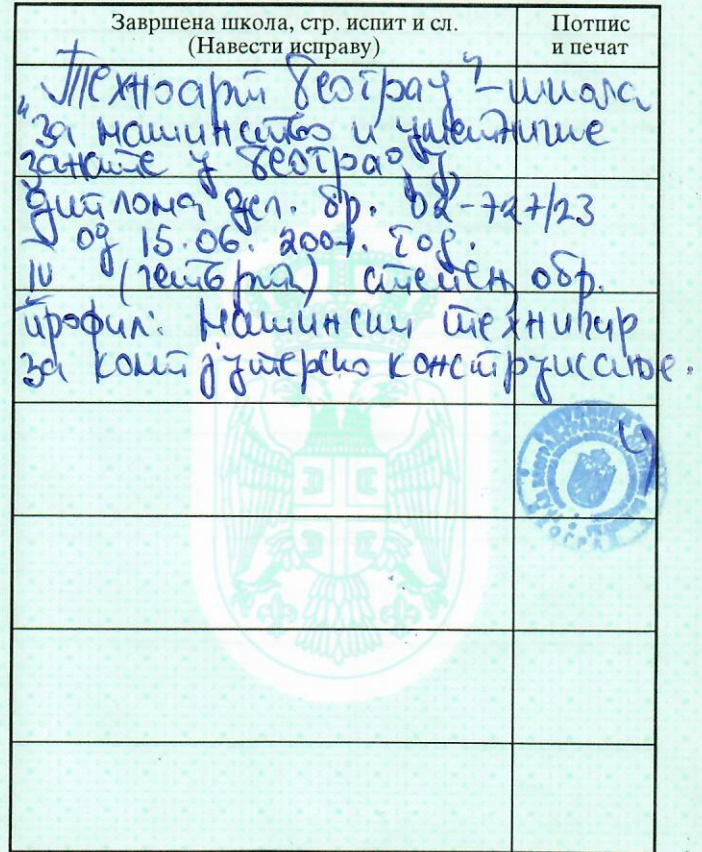 Завршена школа, стр. испит и сл.
(Навести исправу)
Потпис
и печат
„Техноарт Београд“ – школа
за машинство и уметничке
занате у Београду,
диплома дел. бр. 02-727/23
од 15.06. 2001. год.
IV (четврти) степен обр.
профил: машински техничар
за компјутерско конструисање.